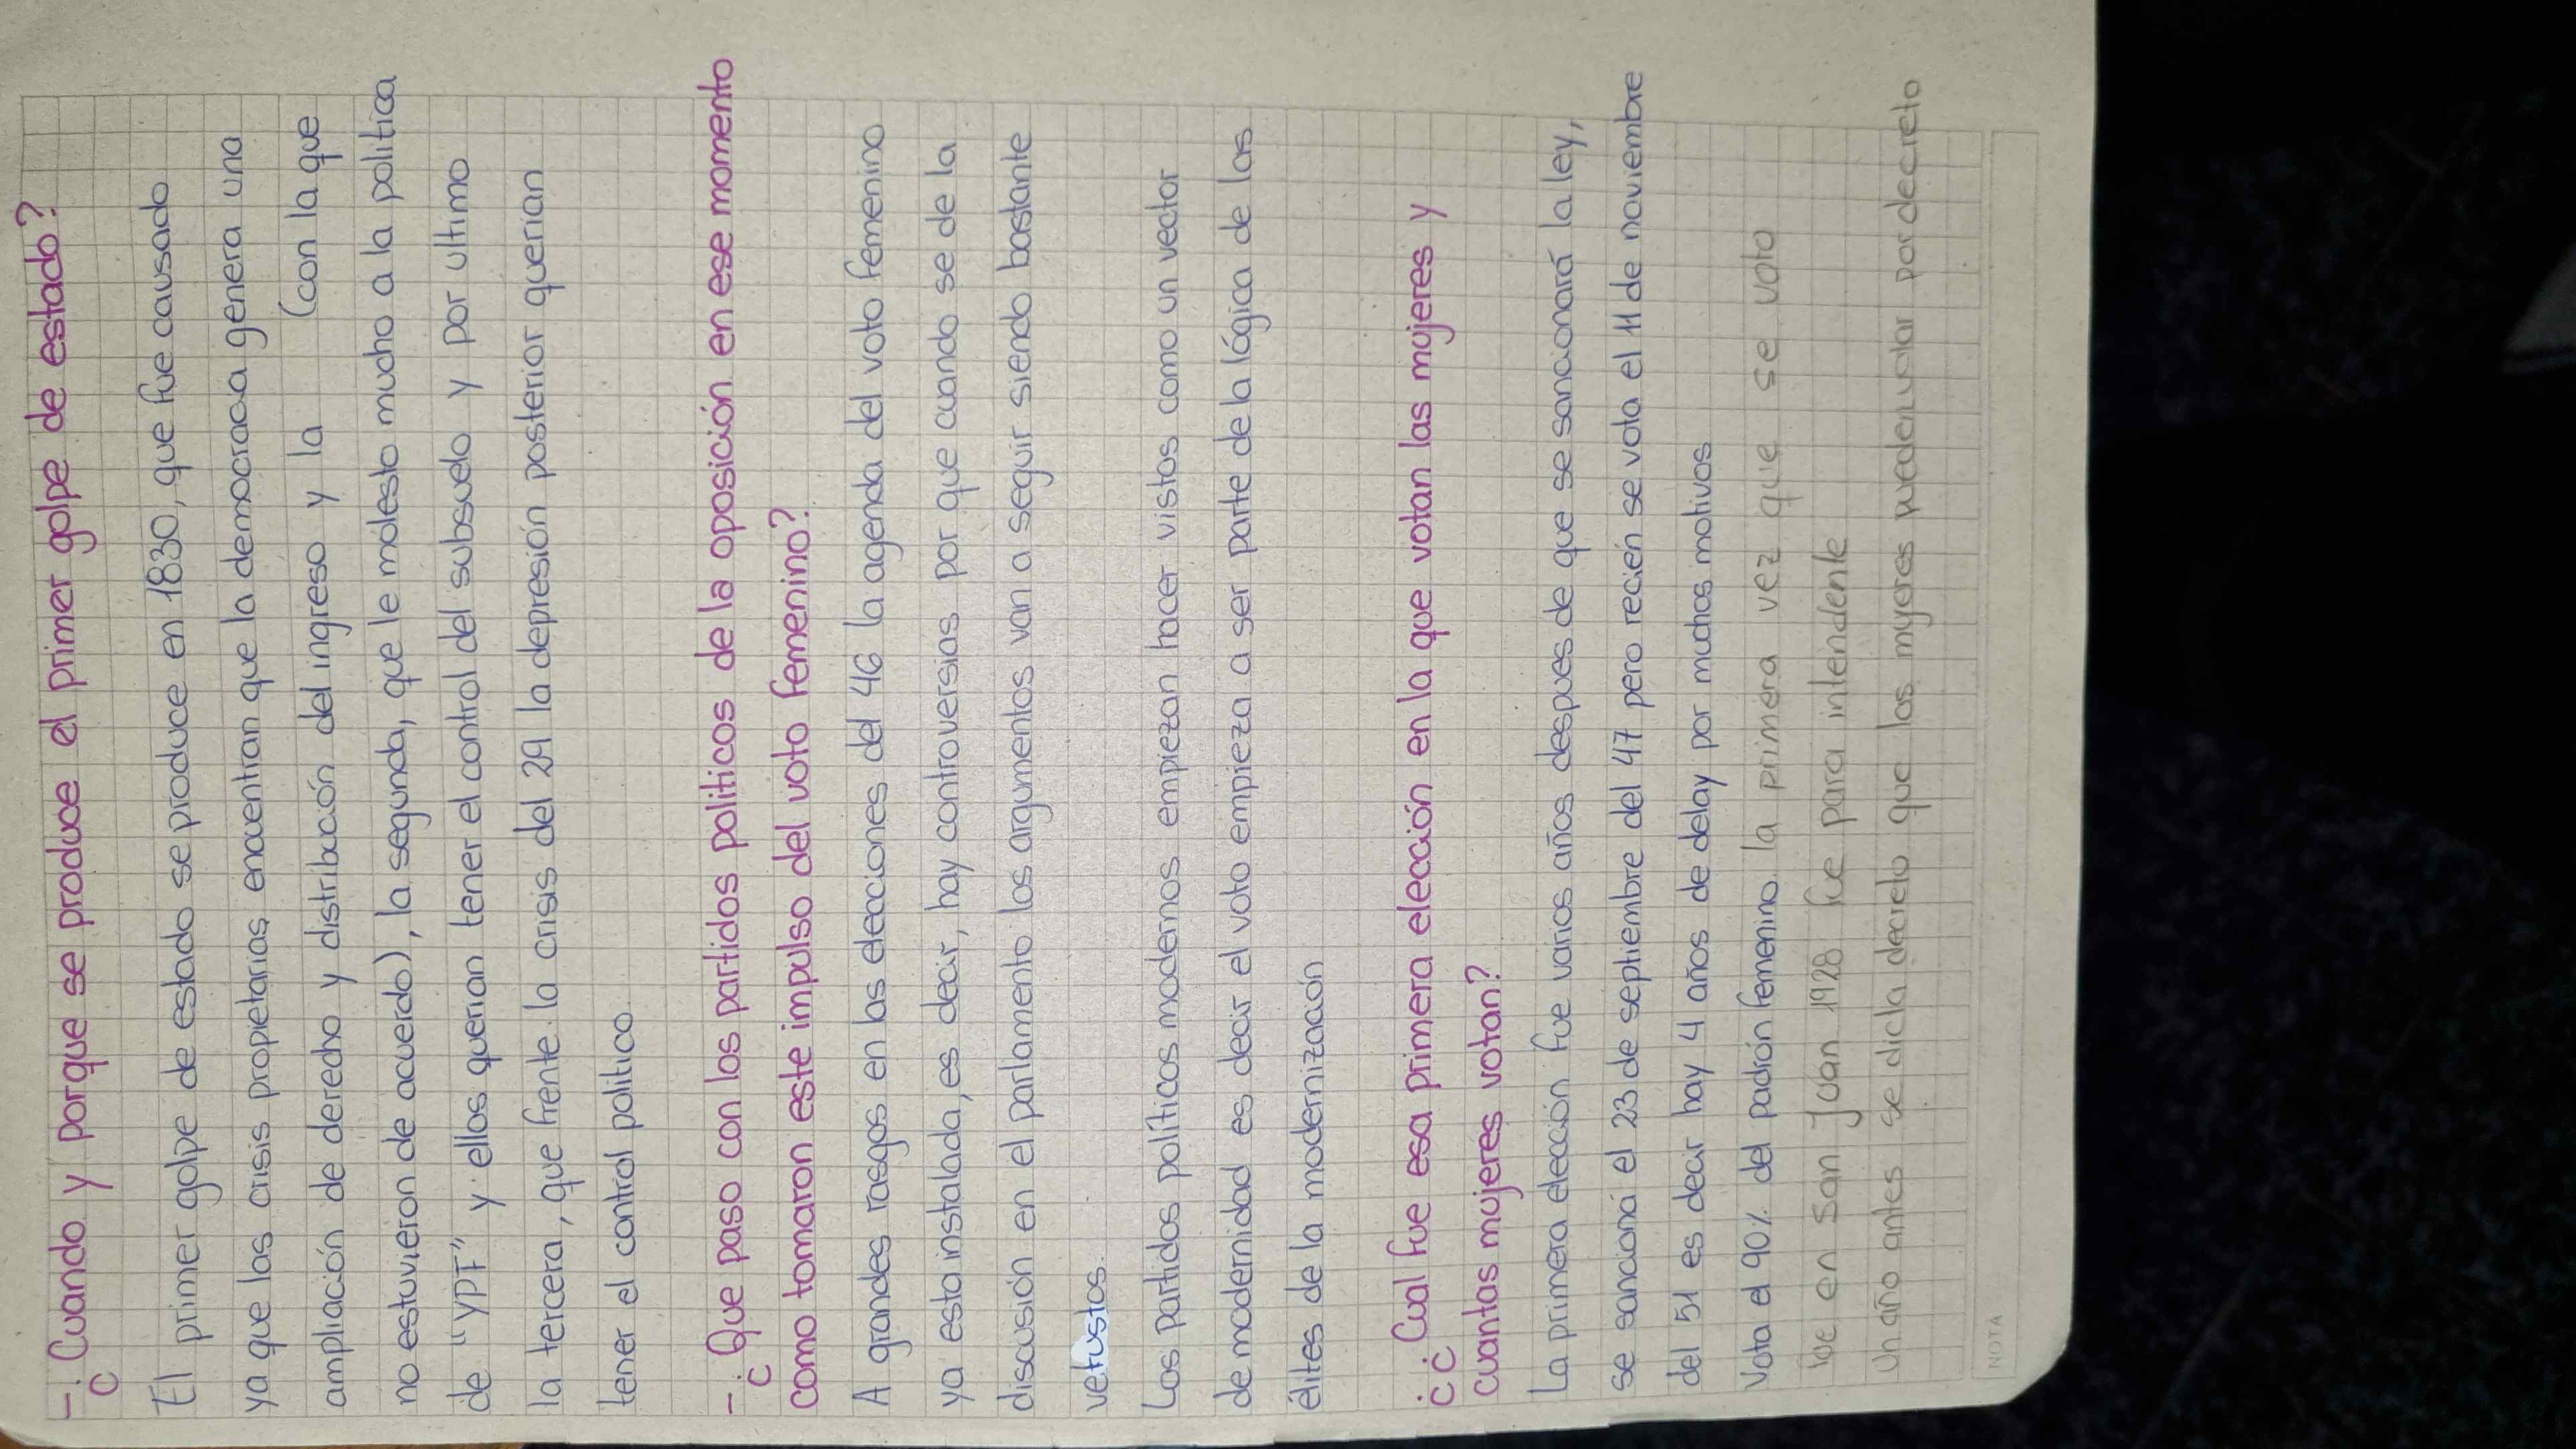 -¿Cuando y porque se produce el primer golpe de estado?
El primer golpe de estado se produce en 1830, que fue causado
ya que las crisis propietarias encuentran que la democracia genera una
ampliación de derecho y distribución del ingreso y la (con la que
no estuvieron de acuerdo), la segunda, que le molesto mucho a la politica
de "YPF" y ellos querian tener el control del subsuelo y por ultimo
la tercera, que frente la crisis del 29 la depresión posterior querian
tener el control politico.
-¿Que paso con los partidos politicos de la oposición en ese momento
como tomaron este impulso del voto femenino?
A grandes rasgos en las elecciones del 46 la agenda del voto femenino
ya esta instalada, es decir, hay controversias por que cuando se de la
discusión en el parlamento los argumentos van a seguir siendo bastante
vetustos.
Los partidos políticos modernos empiezan hacer vistos como un vector
de modernidad es decir el voto empieza a ser parte de la lógica de las
élites de la modernización
¿¿Cual fue esa primera elección en la que votan las mujeres y
cuantas mujeres votan?
La primera elección fue varios años despues de que se sancionará la ley,
se sancioná el 23 de septiembre del 47 pero recién se vota el 11 de noviembre
del 51 es decir hay 4 años de delay por muchos motivos
Vota el 90% del padrón femenino. la primera vez que se voto
fue en San Juan 1928 fue para intendente
Un año antes se dicta decreto que las mujeres pueden votar por decreto
NOTA